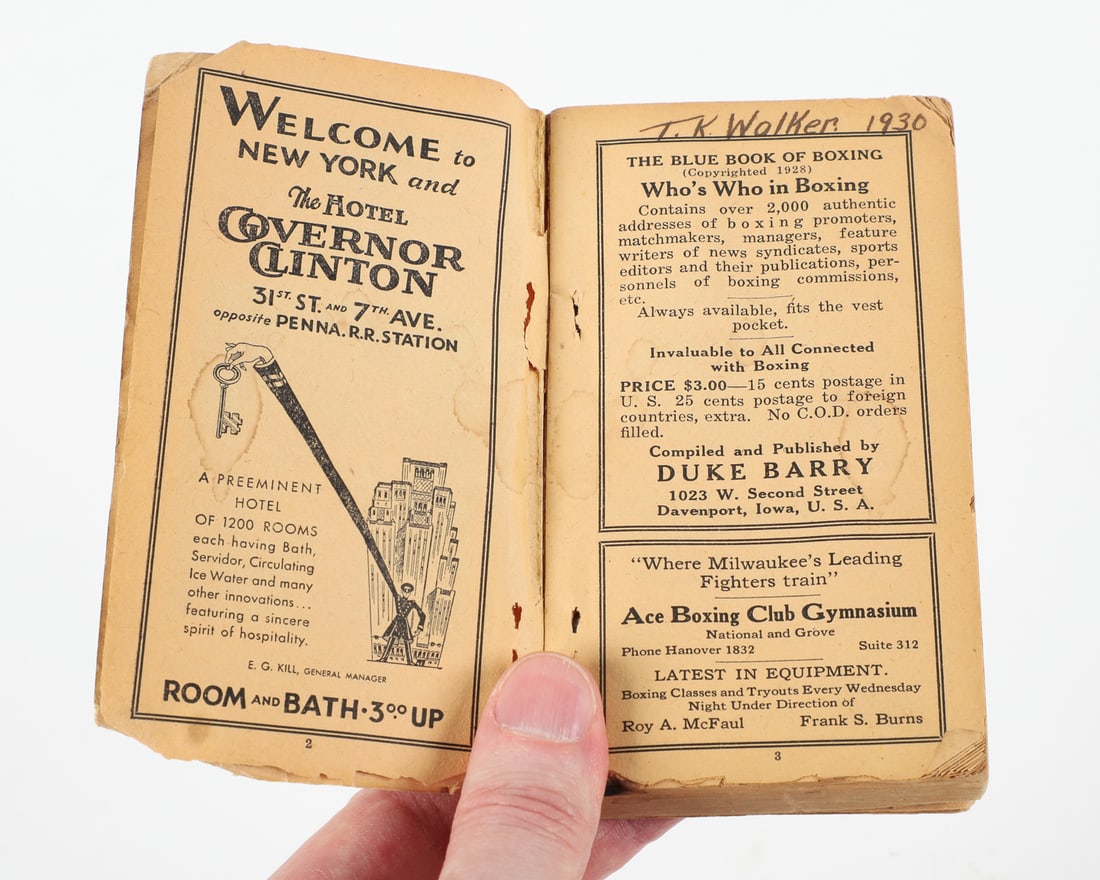 WELCOME to
NEW YORK and
The HOTEL
GOVERNOR
CLINTON
31ST. ST. AND 7TH. AVE.
opposite PENNA. R.R. STATION
A PREEMINENT
HOTEL
OF 1200 ROOMS
each having Bath,
Servidor, Circulating
Ice Water and many
other innovations...
featuring a sincere
spirit of hospitality.
E. G. KILL, GENERAL MANAGER
ROOM AND BATH · 3.00 UP
2
T. K. Walker. 1930
THE BLUE BOOK OF BOXING
(Copyrighted 1928)
Who's Who in Boxing
Contains over 2,000 authentic
addresses of boxing promoters,
matchmakers, managers, feature
writers of news syndicates, sports
editors and their publications, per-
sonnels of boxing commissions,
etc.
Always available, fits the vest
pocket.
Invaluable to All Connected
with Boxing
PRICE $3.00—15 cents postage in
U. S. 25 cents postage to foreign
countries, extra. No C.O.D. orders
filled.
Compiled and Published by
DUKE BARRY
1023 W. Second Street
Davenport, Iowa, U. S. A.
"Where Milwaukee's Leading
Fighters train"
Ace Boxing Club Gymnasium
National and Grove
Phone Hanover 1832 Suite 312
LATEST IN EQUIPMENT.
Boxing Classes and Tryouts Every Wednesday
Night Under Direction of
Roy A. McFaul Frank S. Burns
3